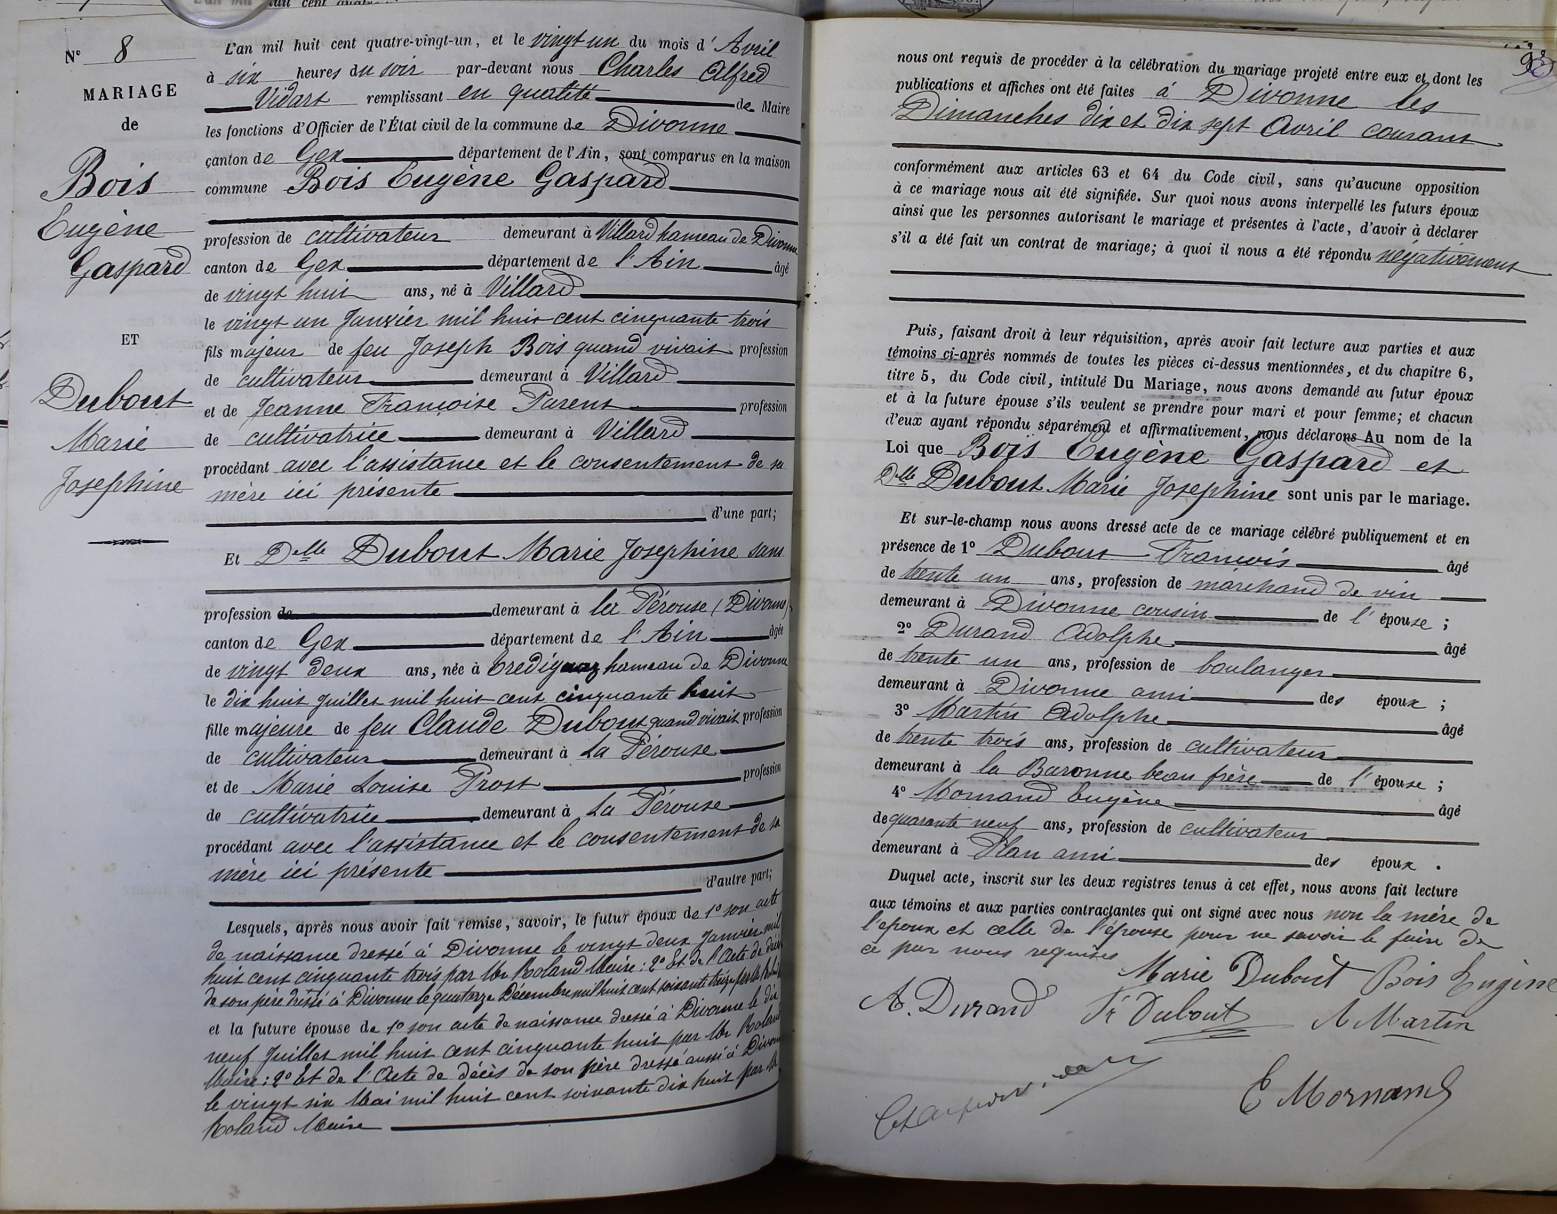 Nº 8
MARIAGE
de
Bois
Eugène
Gaspard
ET
Dubout
Marie
Josephine
L'an mil huit cent quatre-vingt-un, et le vingt un du mois d'Avril
à six heures du soir par-devant nous Charles Alfred
Vidart remplissant en qualité de Maire
les fonctions d'Officier de l'État civil de la commune de Divonne
canton de Gex département de l'Ain, sont comparus en la maison
commune Bois Eugène Gaspard
profession de cultivateur demeurant à Villard hameau de Divonne
canton de Gex département de l'Ain âgé
de vingt huit ans, né à Villard
le vingt un Janvier mil huit cent cinquante trois
fils majeur de feu Joseph Bois quand vivait profession
de cultivateur demeurant à Villard
et de Jeanne Françoise Parent profession
de cultivatrice demeurant à Villard
procédant avec l'assistance et le consentement de sa
mère ici présente
d'une part;
Et Dlle Dubout Marie Josephine sans
profession de demeurant à la Pérouse (Divonne)
canton de Gex département de l'Ain âgée
de vingt deux ans, née à hameau de Divonne
le dix huit Juillet mil huit cent cinquante huit
fille majeure de feu Claude Dubout quand vivait profession
de cultivateur demeurant à La Pérouse
et de Marie Louise Prost profession
de cultivatrice demeurant à La Pérouse
procédant avec l'assistance et le consentement de sa
mère ici présente
d'autre part;
Lesquels, après nous avoir fait remise, savoir, le futur époux de 1º son acte
de naissance dressé à Divonne le vingt deux Janvier mil
huit cent cinquante trois par Mr Roland Maire: 2º Et de l'Acte de décès
de son père dressé à Divonne le quatorze Décembre mil huit cent soixante treize par Mr
et la future épouse de 1º son acte de naissance dressé à Divonne le dix
neuf Juillet mil huit cent cinquante huit par Mr Roland
Maire: 2º Et de l'Acte de décès de son père dressé aussi à Divonne
le vingt six Mai mil huit cent soixante dix huit par Mr
Roland Maire
93
nous ont requis de procéder à la célébration du mariage projeté entre eux et dont les
publications et affiches ont été faites à Divonne les
Dimanches dix et dix sept Avril courant
conformément aux articles 63 et 64 du Code civil, sans qu'aucune opposition
à ce mariage nous ait été signifiée. Sur quoi nous avons interpellé les futurs époux
ainsi que les personnes autorisant le mariage et présentes à l'acte, d'avoir à déclarer
s'il a été fait un contrat de mariage; à quoi il nous a été répondu négativement
Puis, faisant droit à leur réquisition, après avoir fait lecture aux parties et aux
témoins ci-après nommés de toutes les pièces ci-dessus mentionnées, et du chapitre 6,
titre 5, du Code civil, intitulé Du Mariage, nous avons demandé au futur époux
et à la future épouse s'ils veulent se prendre pour mari et pour femme; et chacun
d'eux ayant répondu séparément et affirmativement, nous déclarons Au nom de la
Loi que Bois Eugène Gaspard et
Dlle Dubout Marie Josephine sont unis par le mariage.
Et sur-le-champ nous avons dressé acte de ce mariage célébré publiquement et en
présence de 1º Dubout François âgé
de trente un ans, profession de marchand de vin
demeurant à Divonne cousin de l'épouse;
2º Durand Adolphe âgé
de trente un ans, profession de boulanger
demeurant à Divonne ami des époux;
3º Martin Adolphe âgé
de trente trois ans, profession de cultivateur
demeurant à la Baronne beau frère de l'épouse;
4º Mornand Eugène âgé
de quarante neuf ans, profession de cultivateur
demeurant à Plan ami des époux.
Duquel acte, inscrit sur les deux registres tenus à cet effet, nous avons fait lecture
aux témoins et aux parties contractantes qui ont signé avec nous non la mère de
l'époux et celle de l'épouse pour ne savoir le faire de
ce par nous requises
Marie Dubout Bois Eugène
A. Durand Fs Dubout A Martin
E Mornand